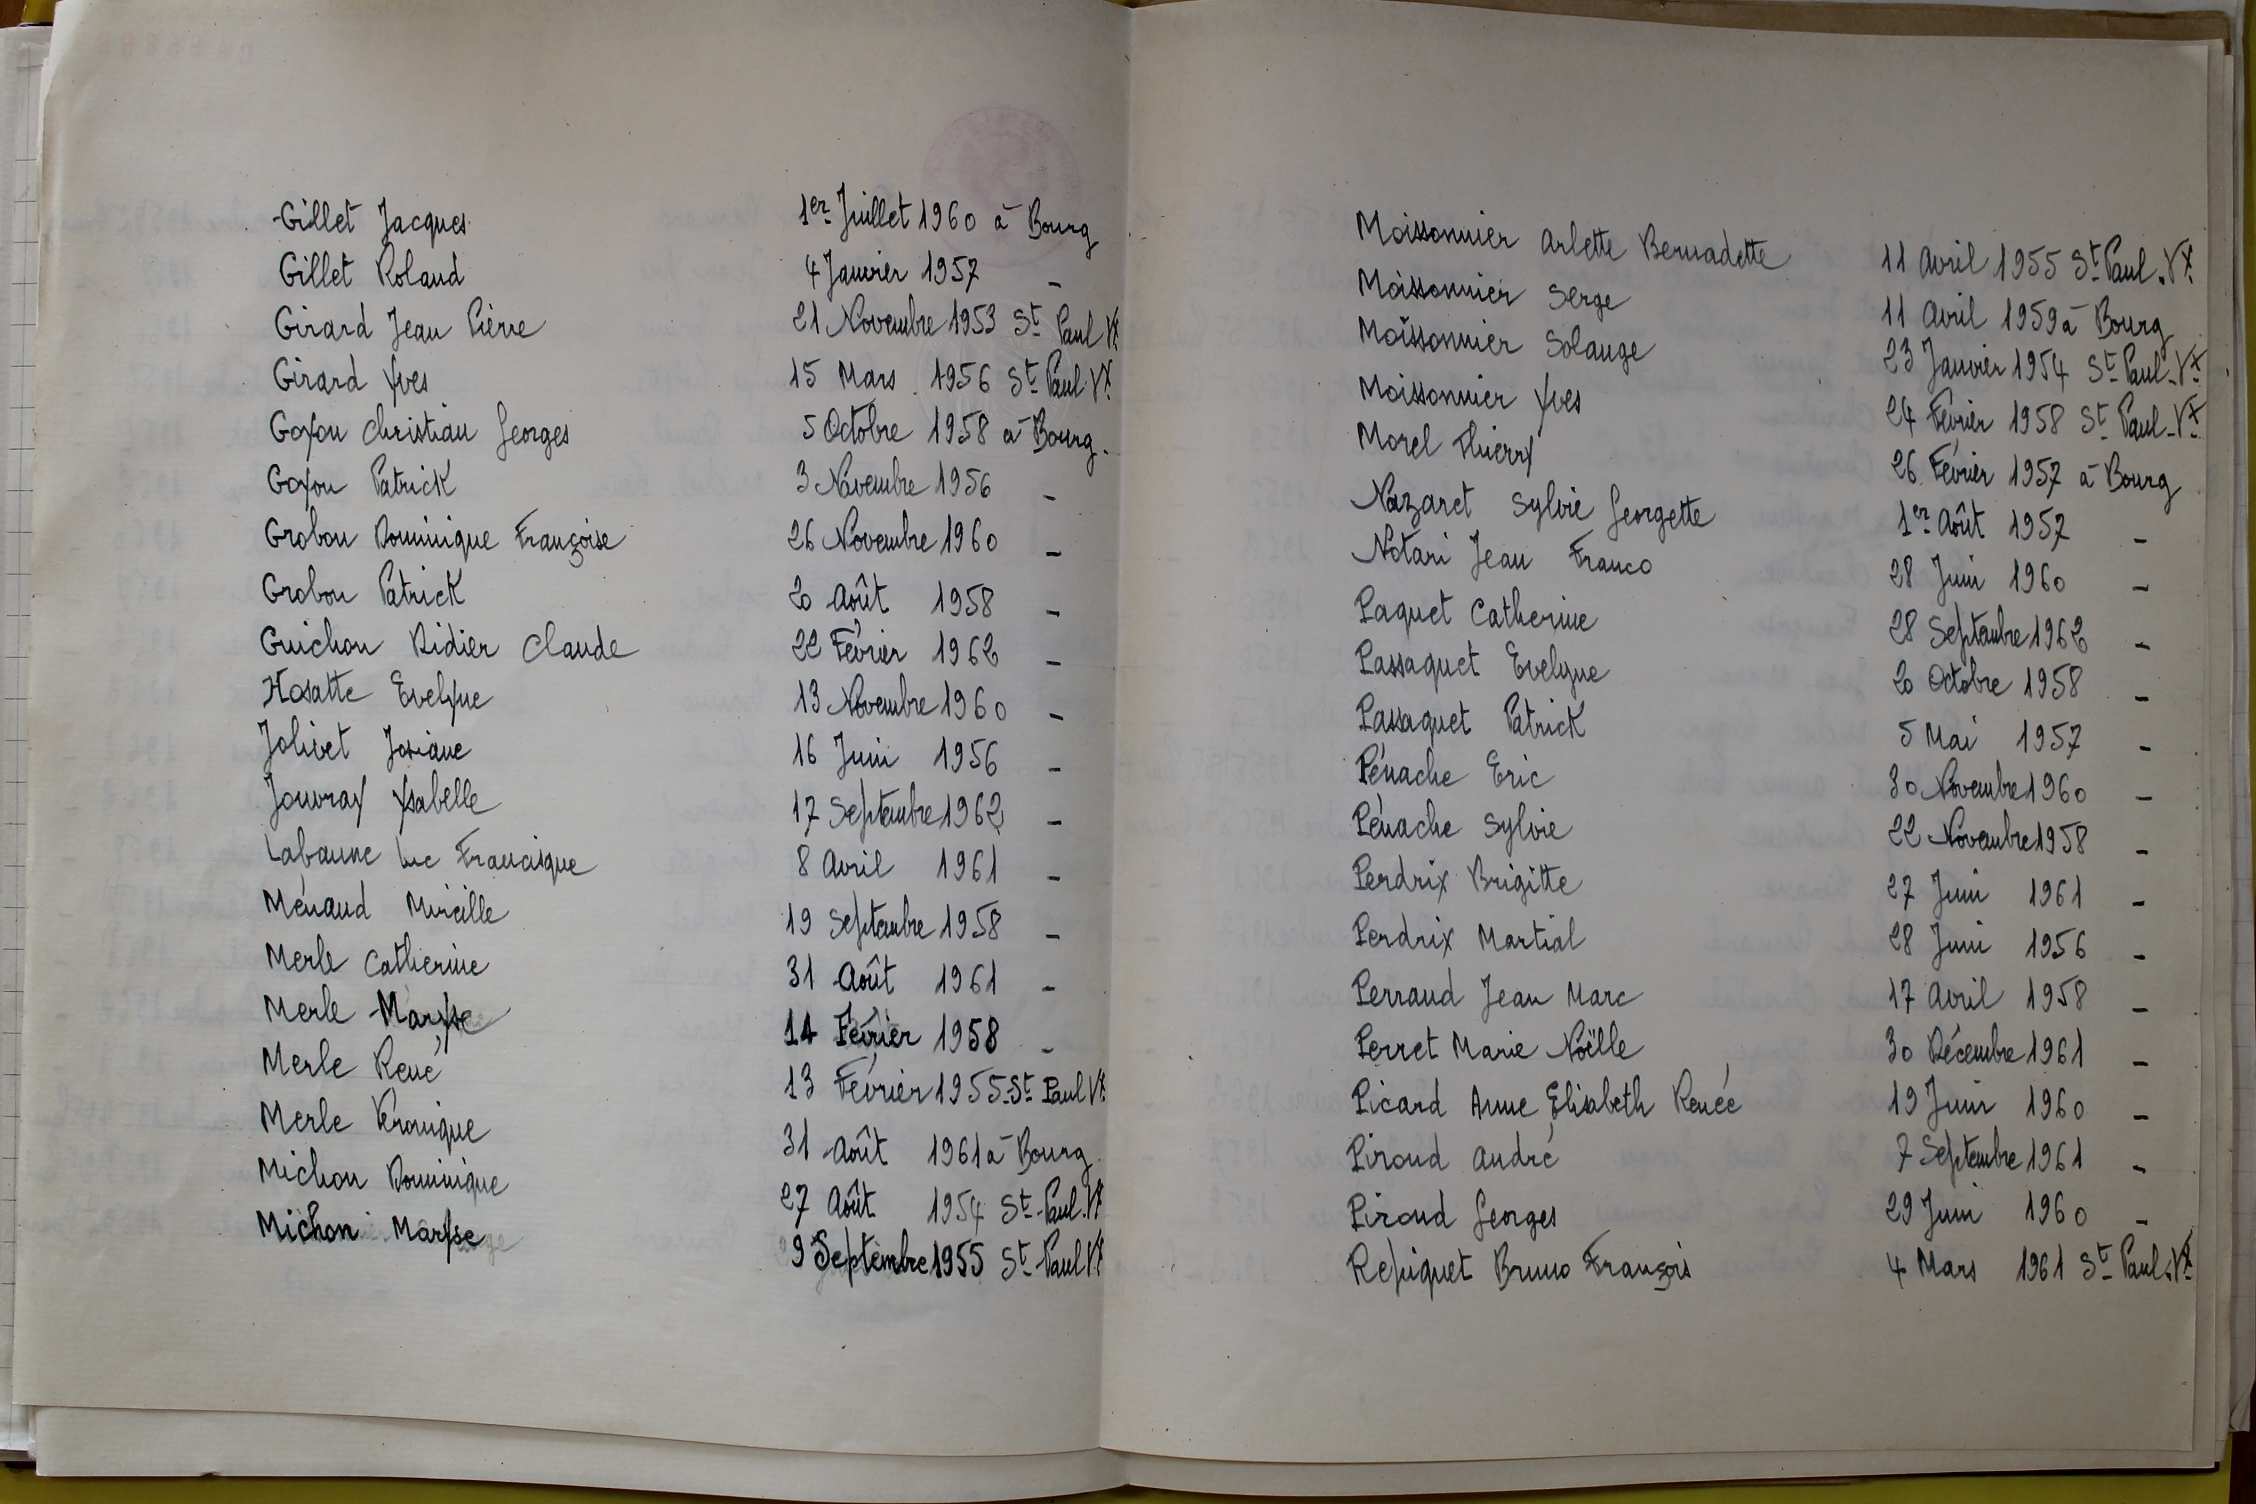 Gillet Jacques 1er Juillet 1960 à Bourg
Gillet Roland 4 Janvier 1957 -
Girard Jean Pierre 21 Novembre 1953 St Paul Vx
Girard Yves 15 Mars 1956 St Paul Vx
Goyon Christian Georges 5 Octobre 1958 à Bourg.
Goyon Patrick 3 Novembre 1956 -
Grobon Dominique Françoise 26 Novembre 1960 -
Grobon Patrick 20 Août 1958 -
Guichon Didier Claude 22 Février 1962 -
Hosatte Evelyne 13 Novembre 1960 -
Jolivet Josiane 16 Juin 1956 -
Jouvray Ysabelle 17 Septembre 1962 -
Labaune Luc Francisque 8 Avril 1961 -
Ménaud Mireille 19 Septembre 1958 -
Merle Catherine 31 Août 1961 -
Merle Maryse 14 Février 1958 -
Merle René 13 Février 1955 St Paul Vx
Merle Véronique 31 Août 1961 à Bourg
Michon Dominique 27 Août 1954 St-Paul.Vx
Michon Maryse 9 Septembre 1955 St-Paul Vx
Moissonnier Arlette Bernadette 11 Avril 1955 St Paul.Vx
Moissonnier Serge 11 Avril 1959 à Bourg
Moissonnier Solange 23 Janvier 1954 St Paul-Vx
Moissonnier Yves 24 Février 1958 St Paul-Vx
Morel Thierry 26 Février 1957 à Bourg
Nazaret Sylvie Georgette 1er Août 1957 -
Notari Jean Franco 28 Juin 1960 -
Paquet Catherine 28 Septembre 1962 -
Passaquet Evelyne 20 Octobre 1958 -
Passaquet Patrick 5 Mai 1957 -
Pénache Eric 30 Novembre 1960 -
Pénache Sylvie 22 Novembre 1958 -
Perdrix Brigitte 27 Juin 1961 -
Perdrix Martial 28 Juin 1956 -
Perraud Jean Marc 17 Avril 1958 -
Perret Marie Noëlle 30 Décembre 1961 -
Picard Anne Elisabeth Renée 19 Juin 1960 -
Piroud André 7 Septembre 1961 -
Piroud Georges 29 Juin 1960 -
Repiquet Bruno François 4 Mars 1961 St Paul.Vx